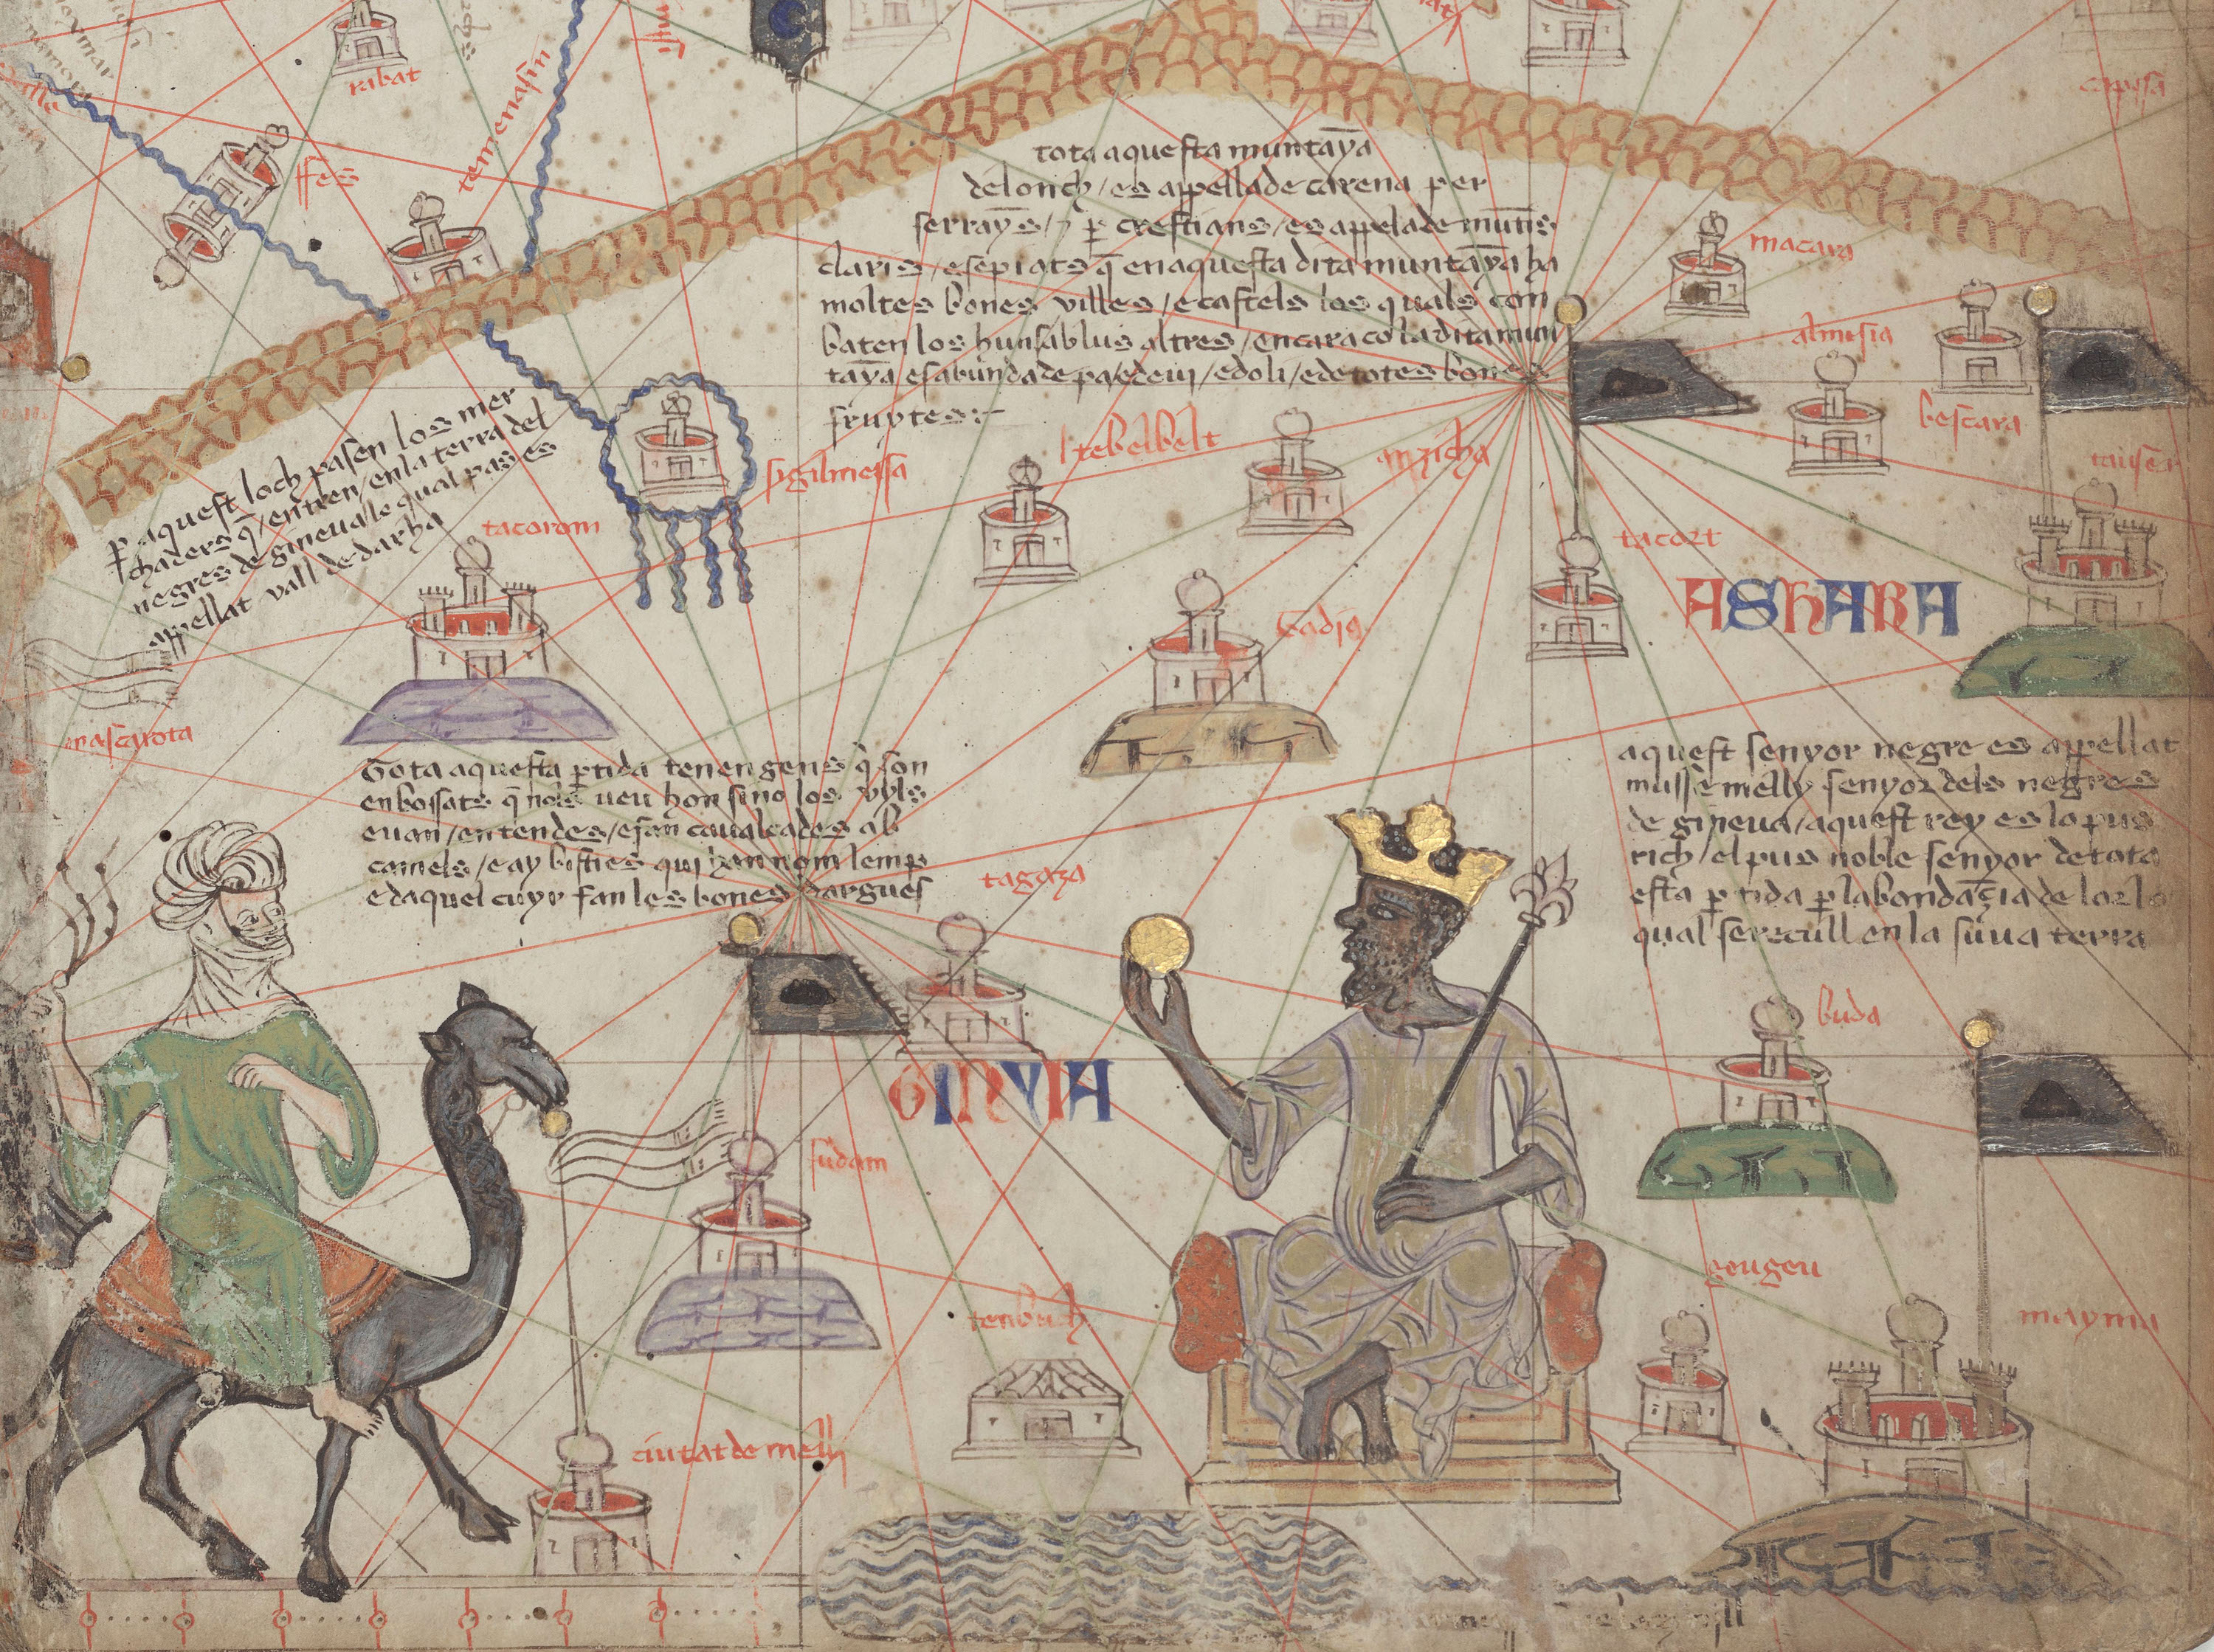 ribat
ffes
temenasin
capisa
tota aquesta muntaỹa
de lonch / es appellade carena per
serrayns / ⁊ ꝑ crestians / es appelade muntis
claris / e sepiats q̃ en aquesta dita muntaỹa ha
moltes bones villes / e castels los quals com
baten los huns ab lus altres / encara co la dita mun
taỹa es abundade pa / e de vin / e doli / e de totes bones
fruytes:–
macara
almisia
bescara
ꝑ aquest loch pasen los mer
chaders q̃ / entren / en la terra del
negres de gineua / le qual pas es
appellat vall de darha
sigilmessa
tacorom
tebelbelt
anzicha
tacort
ASHARA
mascarota
Tota aquesta ꝑtida tenen gens q̃ son
enbossats q̃ nols veu hon sino los vyls
e van / en tendes / e fan caualcades ab
camels / e ay bisties qui han nom lemp
e daquel cuyr fan les bones dargues
aquest senyor negre es appellat
musse melly senyor dels negres
de gineua / aquest rey es lo pus
rich / el pus noble senyor de tota
esta ꝑtida ꝑ labondaçia de lor lo
qual se recull en la suua terra
tagaza
buda
GINYIA
sudam
tenbuch
geugeu
mayma
ciutat de melly